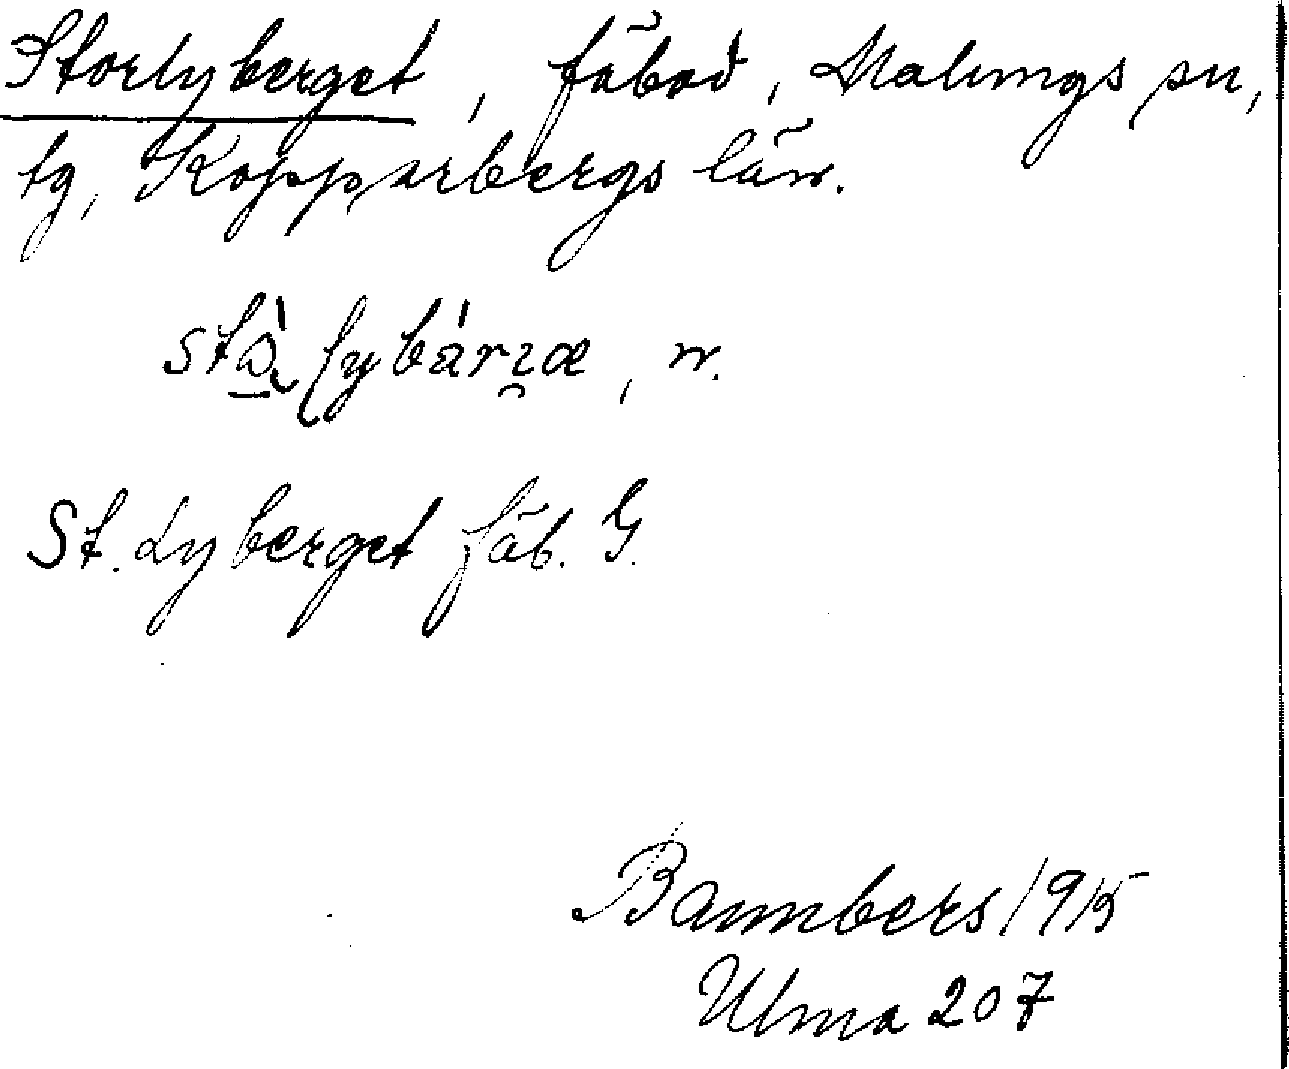 Storlyberget, fäbod, Malungs sn,
tg, Kopparbergs län.
n.
St. Lyberget fäb. G.
Bannbers 1915
Ulma 207